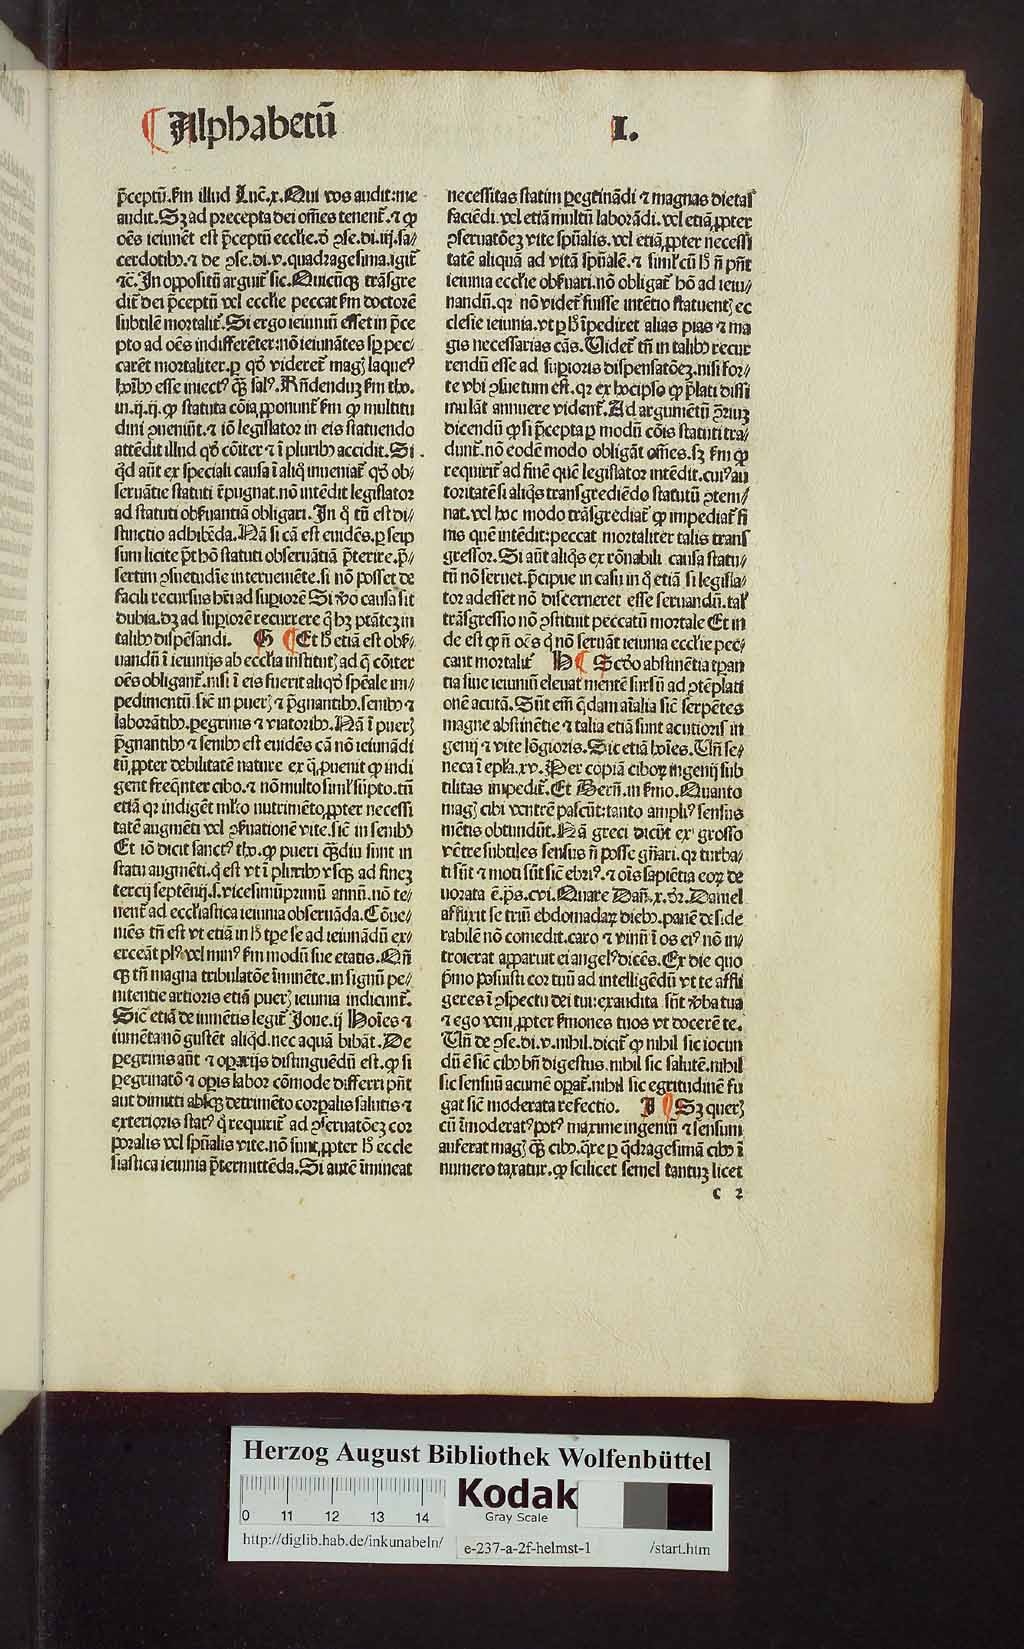 Alphabetū I.
p̄ceptū. ẜm illud Luc̄. x. Qui vos audit: me
audit. Sꝫ ad precepta dei om̄es tenent᷑. ⁊ ꝙ
oēs ieiunēt est p̄ceptū eccl̄ie. d̄ ꝯse. di. iij. sa⸗
cerdotibꝰ. ⁊ de ꝯse. di. v. quadragesima. igit᷑
⁊c̄. In oppositū arguit᷑ sic. Quicūqꝫ trāsgre
dit᷑ dei p̄ceptū vel eccl̄ie peccat ẜm doctorē
subtilē mortalit᷑. Si ergo ieiuniū esset in p̄ce
pto ad oēs indifferēter: nō ieiunātes sꝑ pec⸗
carēt mortaliter. ꝑ qđ videret᷑ magꝭ laqueꝰ
hoībꝰ esse iniectꝰ qꝫ̄ salꝰ. Rn̄dendūꝫ ẜm tho.
in. ij. ij. ꝙ statuta cōia ꝓponunt᷑ ẜm ꝙ multitu
dini ꝯueniūt. ⁊ iō legislator in eis statuendo
attēdit illud qđ cōiter ⁊ ī pluribꝰ accidit. Si
qđ aūt ex speciali causa ī aliq̄ inueniat᷑ qđ ob⸗
seruātie statuti r̄pugnat. nō intēdit legislator
ad statuti obẜuantiā obligari. In q̄ tn̄ est di⸗
stinctio adhibēda. Nā si cā est euidēs. ꝑ seip
sum licite p̄t hō statuti obseruātiā p̄terire. p̄⸗
sertim ꝯsuetudīe interueniēte. si nō posset de
facili recursus hr̄i ad supiorē Si v̄o causa sit
dubia. dꝫ ad supiorē recurrere q̄ hꝫ ptāteꝫ in
talibꝰ dispēsandi. G Et h̄ etiā est obẜ⸗
uandū ī ieiunijs ab eccl̄ia institutꝭ ad q̄ cōiter
oēs obligant᷑. nisi ī eis fuerit aliqđ sp̄eale im⸗
pedimentū. sic̄ in puerꝭ ⁊ p̄gnantibꝰ. senibꝰ ⁊
laborātibꝰ. ꝑegrinis ⁊ viatoribꝰ. Nā ī puerꝭ
p̄gnantibꝰ ⁊ senibꝰ est euidēs cā nō ieiunādi
tū ꝓpter debilitatē nature ex q̄ ꝓuenit ꝙ indi
gent freq̄nter cibo. ⁊ nō multo simĺ sūpto. tū
etiā qꝛ indigēt ml̄to nutrimēto ꝓpter necessi
tatē augmēti vel ꝯẜuationē vite. sic̄ in senibꝰ
Et iō dicit sanctꝰ tho. ꝙ pueri qꝫ̄diu sunt in
statu augmēti. q̄ est vt ī pluribꝰ vsqꝫ ad fineꝫ
tercij septēnij. s. vicesimūprimū annū. nō te⸗
nent᷑ ad eccl̄iastica ieiunia obseruāda. Cōue⸗
niēs tn̄ est vt etiā in h̄ tꝑe se ad ieiunādū ex⸗
erceāt plꝰ vel minꝰ ẜm modū sue etatis. Qn̄
qꝫ tn̄ magna tribulatōe īminēte. in signū pe⸗
nitentie artioris etiā puerꝭ ieiunia indicunt᷑.
Sic̄ etiā de iumētis legit᷑ Jone. ij Hoīes ⁊
iumēta nō gustēt aliq̄d. nec aquā bibāt. De
ꝑegrinis aūt ⁊ oꝑarijs distinguēdū est. ꝙ si
ꝑegrinatō ⁊ oꝑis labor cōmode differri pn̄t
aut dimitti absqꝫ detrimēto corꝑalis salutis ⁊
exterioris statꝰ q̄ requirit᷑ ad ꝯseruatōeꝫ cor
poralis vel sp̄ūalis vite. nō sunt ꝓpter h̄ eccle
siastica ieiunia p̄termittēda. Si autē īmineat
necessitas statim ꝑegrinādi ⁊ magnas dietas
faciēdi. vel etiā multū laborādi. vel etiā ꝓpter
ꝯseruatōeꝫ vite sp̄ūalis. vel etiā ꝓpter necessi
tatē aliquā ad vitā sp̄ūalē. ⁊ simĺ cū h̄ n̄ pn̄t
ieiunia eccl̄ie obẜuari. nō obligat᷑ hō ad ieiu⸗
nandū. qꝛ nō videt᷑ fuisse intētio statuentꝭ ec
clesie ieiunia. vt ꝑ h̄ īpediret alias pias ⁊ ma
gis necessarias cās. Videt᷑ tn̄ in talibꝰ recur
rendū esse ad suꝑioris dispensatōeꝫ. nisi for⸗
te vbi ꝯsuetum est. qꝛ ex hocipso ꝙ p̄lati dissi
mulāt annuere vident᷑. Ad argumētū p̄riuꝫ
dicendū ꝙ si p̄cepta ꝑ modū cōis statuti tra⸗
dunt᷑. nō eodē modo obligāt om̄es. sꝫ ẜm ꝙ
requirit᷑ ad finē quē legislator intēdit. cuiꝰ au
toritatē si aliq̄s transgrediēdo statutū ꝯtem⸗
nat. vel hoc modo trāsgrediat᷑ ꝙ impediat᷑ fi
nis quē intēdit: peccat mortaliter talis trans
gressor. Si aūt aliq̄s ex rōnabili causa statu⸗
tū nō seruet. p̄cipue in casu in q̄ etiā si legisla⸗
tor adesset nō discerneret esse seruandū. taĺ
trāsgressio nō ꝯstituit peccatū mortale Et in
de est ꝙ n̄ oēs q̄ nō seruāt ieiunia eccl̄ie pec⸗
cant mortalit᷑ H Scd̄o abstinētia tꝑan
tia siue ieiuniū eleuat mentē sursū ad ꝯtēplati
onē acutā. Sūt em̄ q̄dam aīalia sic̄ serpētes
magne abstinētie ⁊ talia etiā sunt acutioris in
genij ⁊ vite lōgioris. Sic etiā hoīes. Vn̄ se⸗
neca ī epl̄a. xv. Per copiā ciboꝝ ingenij sub
tilitas impedit᷑. Et Bern̄. in ẜmo. Quanto
magꝭ cibi ventrē pascūt: tanto ampliꝰ sensus
mētis obtundūt. Nā greci dicūt ex grosso
vētre subtiles sensus n̄ posse gn̄ari. qꝛ turba⸗
ti sūt ⁊ moti sūt sic̄ ebriꝰ. ⁊ oīs sapiētia eoꝝ de
uorata ē. p̄s. cvi. Quare Dan̄. x. dr̄. Daniel
afflixit se triū ebdomadaꝝ diebꝰ. panē deside
rabilē nō comedit. caro ⁊ vinū ī os eiꝰ nō in⸗
troierat apparuit ei angelꝰ dicēs. Ex die quo
p̄mo posuisti cor tuū ad intelligēdū vt te affli
geres ī ꝯspectu dei tui: exaudita sūt v̄ba tua
⁊ ego veni ꝓpter ẜmones tuos vt docerē te.
Vn̄ de ꝯse. di. v. nihil. dicit᷑ ꝙ nihil sic iocun
dū ē sic̄ cibꝰ bn̄ digestus. nihil sic salutē. nihil
sic sensuū acumē oꝑat᷑. nihil sic egritudinē fu
gat sic̄ moderata refectio. J Sꝫ querꝭ
cū īmoderatꝰ potꝰ maxime ingeniū ⁊ sensum
auferat magꝭ qꝫ̄ cibꝰ. q̄re ꝑ q̄dragesimā cibꝰ ī
numero taxatur. ꝙ scilicet semel tantuꝫ licet
c 2
Herzog August Bibliothek Wolfenbüttel
Kodak
Gray Scale
0 11 12 13 14
http://diglib.hab.de/inkunabeln/ e-237-a-2f-helmst-1 /start.htm